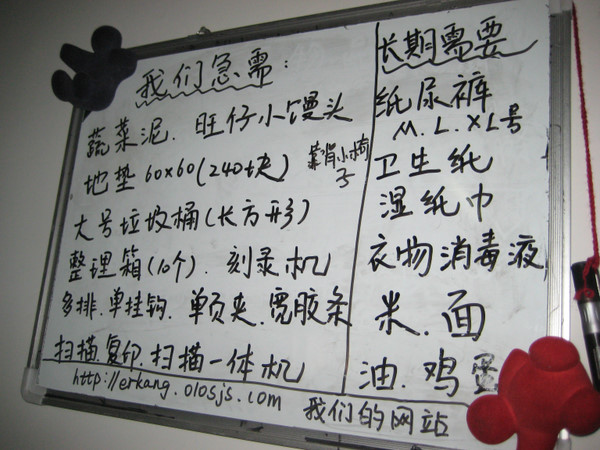 我们急需：
蔬菜泥．旺仔小馒头
地垫60x60(240块)
靠背小椅
子
大号垃圾桶(长方形)
整理箱(10个)．刻录机
多排．单挂钩．单页夹．宽胶条
扫描复印．扫描一体机
http://erkang.olosjs.com
我们的网站
长期需要
纸尿裤
M．L．XL号
卫生纸
湿纸巾
衣物消毒液
米．面
油．鸡蛋